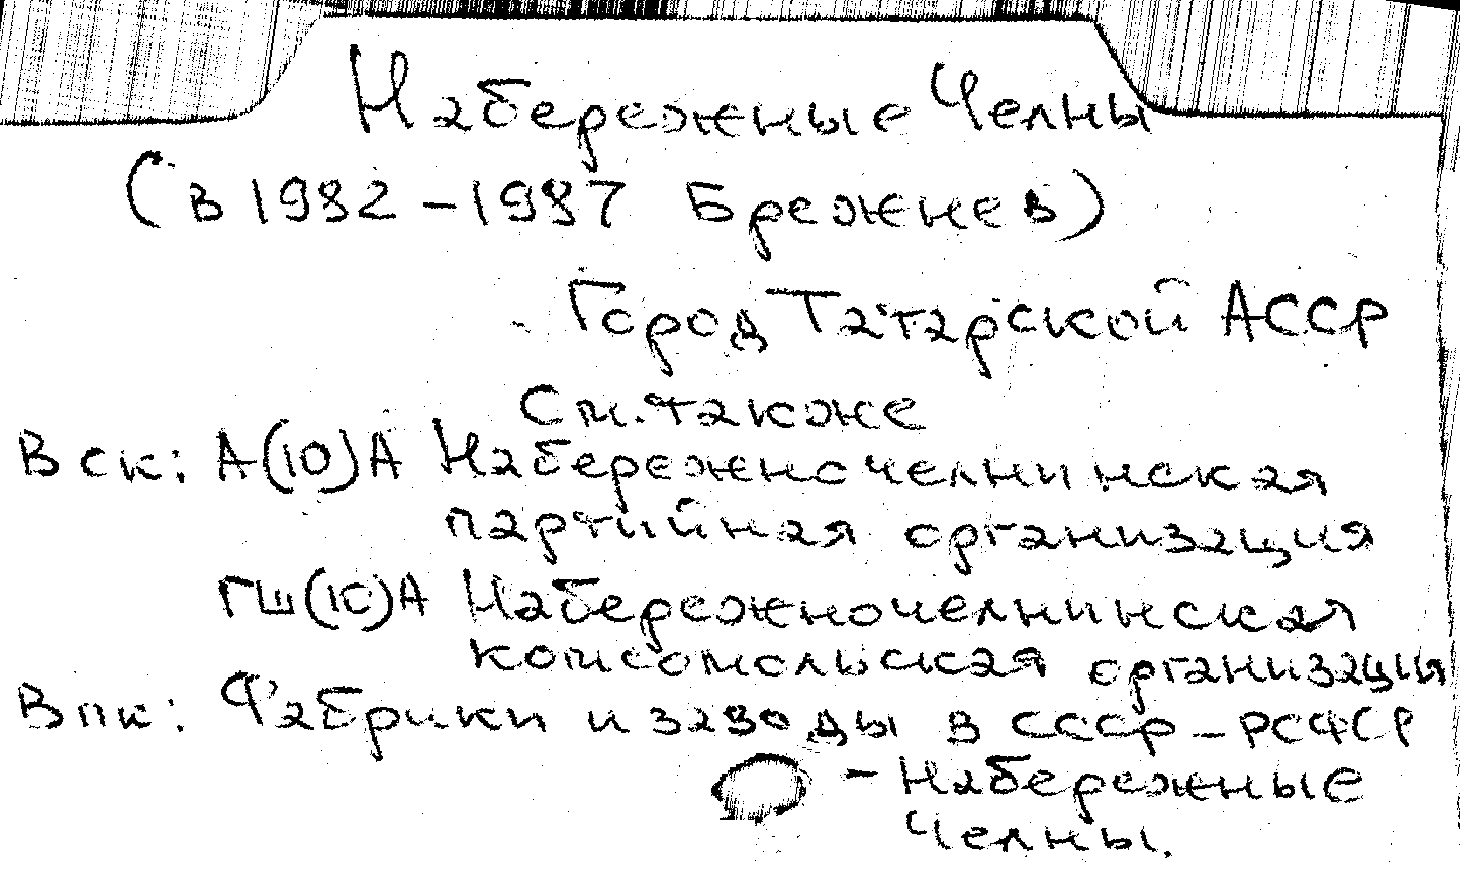 Набережные Челны
(в 1982-1987 Брежнев)
Город Татарской АССР
См. также
В ск: А(10)А Набережночелнинская
партийная организация
ГШ(10)А Набережночелнинская
комсомольская организация
В пк: Фабрики и заводы в СССР - РСФСР
- Набережные
Челны.